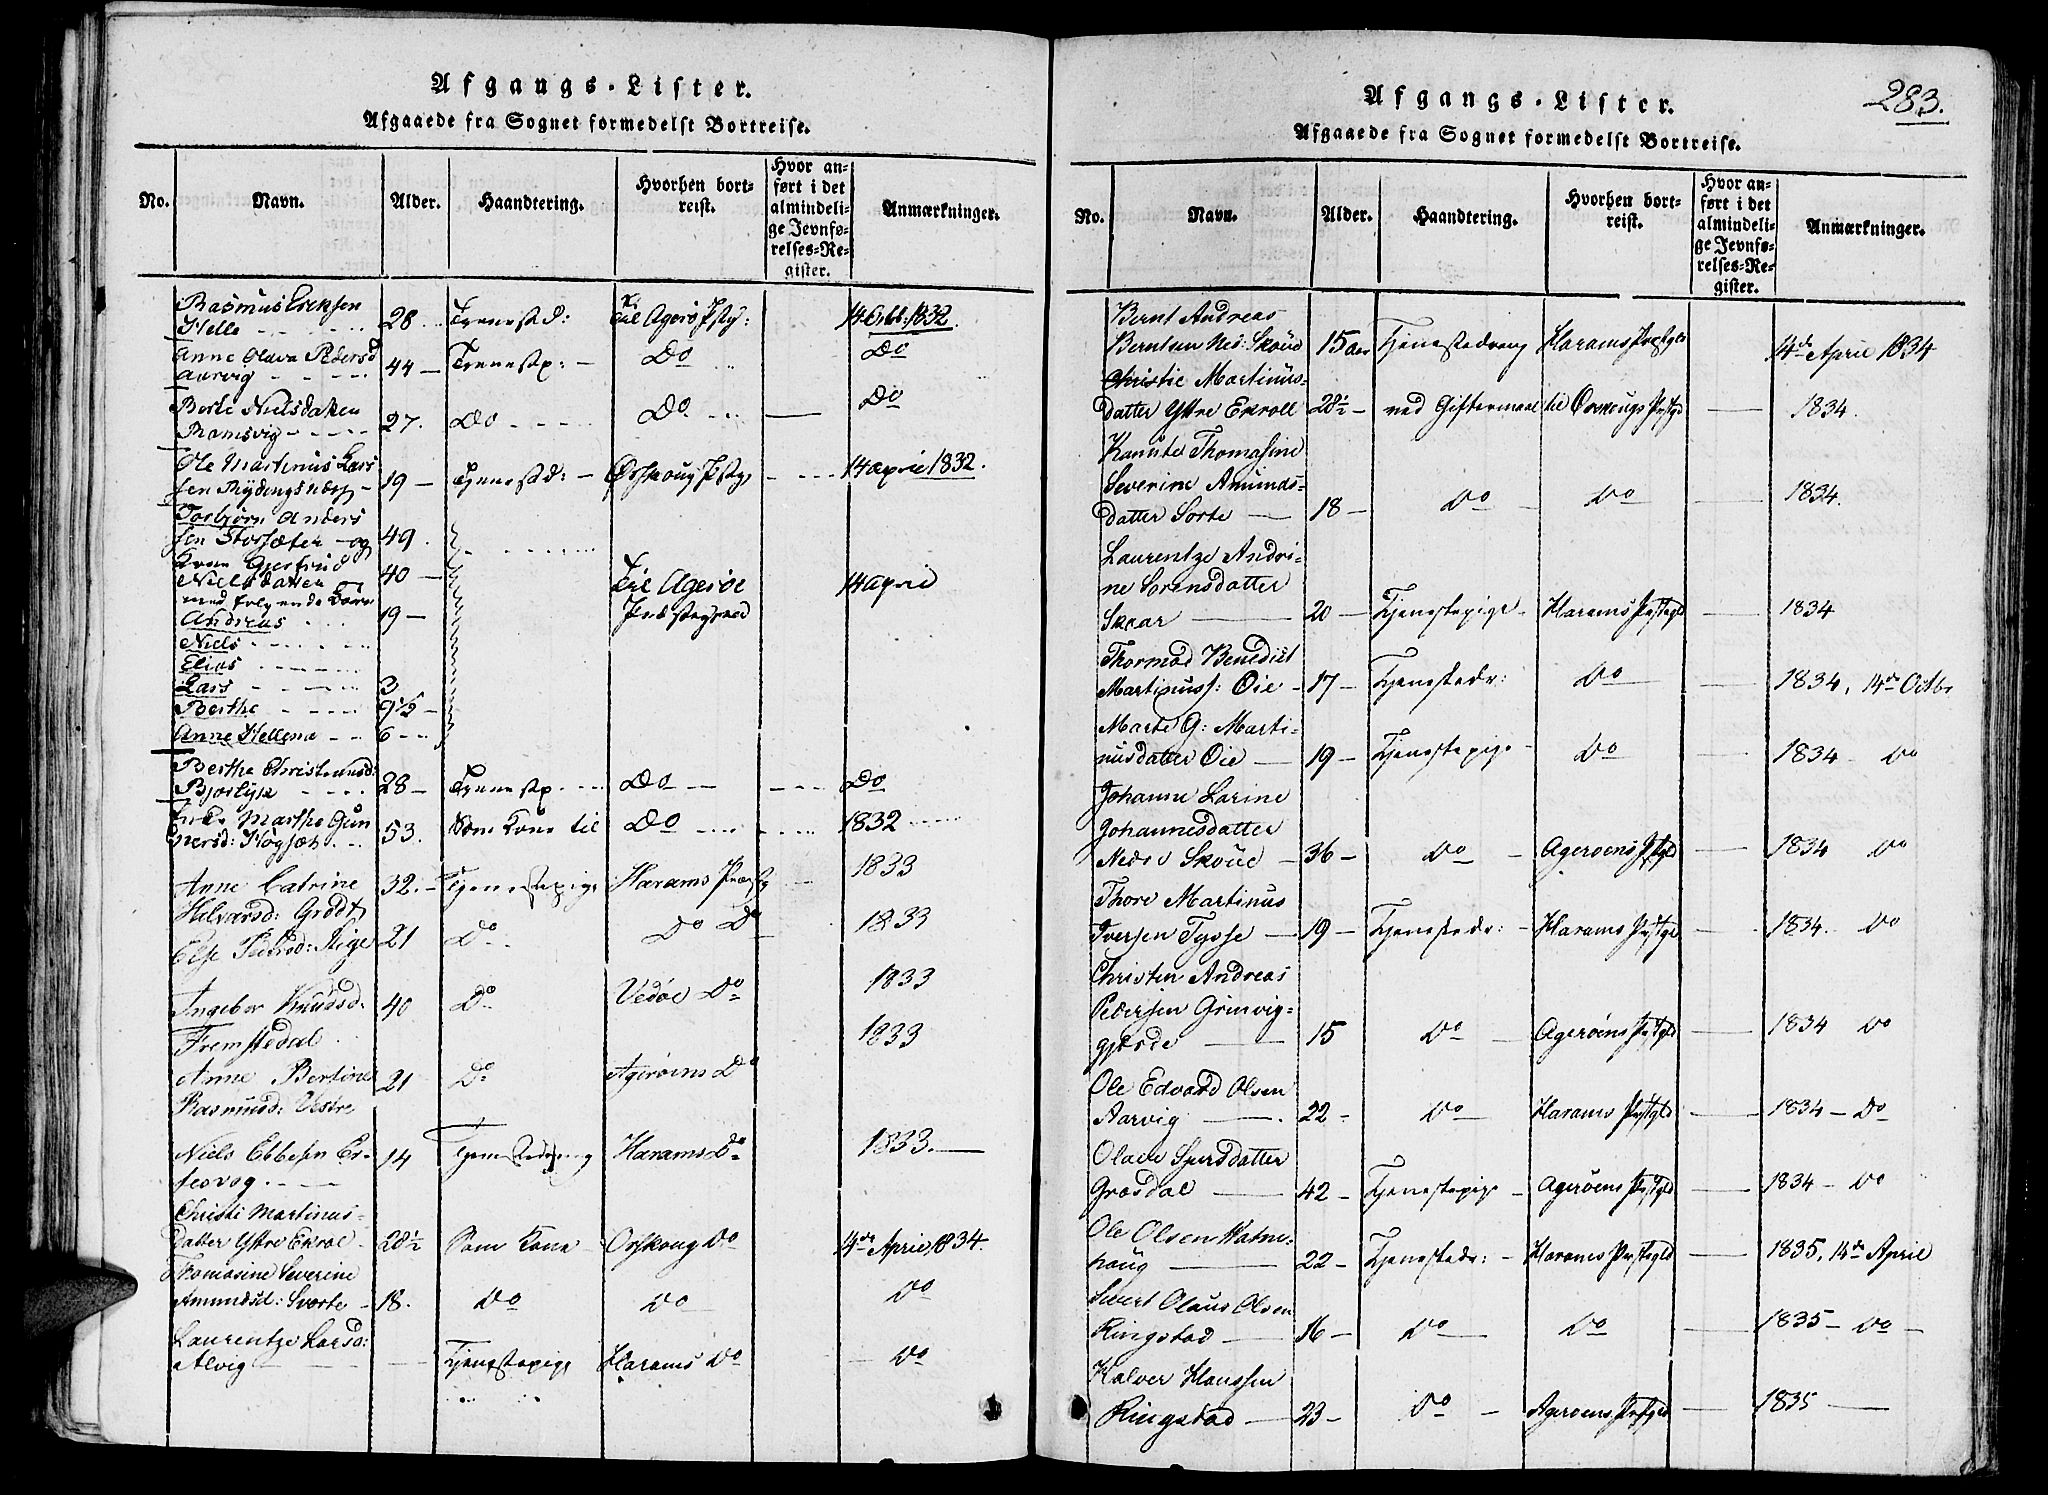 Afgangs-Lister.
Afgaaede fra Sognet formedelst Bortreise.
No. Navn. Alder. Haandtering. Hvorhen bortreist. Hvor anført i det almindelige Jevnførelses-Register. Anmærkninger.
Rasmus Ericksen
Helle 28 Tjenested: Til Agerø Pstg: 14 Octb: 1832.
Anne Olava Pedersd
Aarvig 44 Tjenestp: Do Do
Berte Nielsdatter
Ramsvig 27. Do Do Do
Ole Martinus Lars
sen 19 Tjenested: Ørskoug Pstg 14 April 1832.
Torbjørn Anders
sen Storsæter og 49.
Kone Gjertrud
Nielsdatter 40 Til Agerøe 14 April
med følgende Børn
Andreas 19 Præstegjeld
Niels
Elias
Lars 3
Berthe 9 1/2
Anne Hellena 6
Berthe Christensd:
Bjørlyk 28 Tjenestp. Do Do
Enke Marthe Gun
nersd: Høgset 53. Som Kone til Do 1832
Anne Catrine 32. Tjenestepige Harams Præstg 1833
Halvorsd: Grødt
Else Pedersd: Rige 21 Do Do Do 1833
Ingebor Knudsd: 40 Do Vedøe Do 1833
Fremstedal 1833
Anne Bertine 21 Do Agerøens Do
Rasmusd: Vestre
Niels Ebbesen 14 Tjenestedreng Harams Do 1833.
Christi Martinus-
datter Ystre Ekrol 28 1/2 Som Kone Orskoug Do 14de April 1834.
Thomasine Severine
Amundsd: Svorte 18. Do Do Do
Laurentze Larsd:
Alvig Tjenestepige Harams Do Do
283.
Afgangs-Lister.
Afgaaede fra Sognet formedelst Bortreise.
No. Navn. Alder. Haandtering. Hvorhen bortreist. Hvor anført i det almindelige Jevnførelses-Register. Anmærkninger.
Bernt Andreas
Berntsen Ned: Skoue 15 Aar Tjenestedreng Harams Præstgld 14de April 1834
Christie Martinus-
datter Ystre Ekroll 28 1/2 ved Giftermaal til Ørskougs Prstgd 1834.
Kanute Thomasine
Severine Amunds-
datter Sorte 18 Do Do 1834.
Laurentze Andri-
ne Sorensdatter
Skaar 20 Tjenestepige Harams Prstegld 1834
Thormod Benedict
Martinuss: Øie 17 Tjenestedr: Do 1834, 14de Octbr
Marte G: Marti-
nusdatter Øie 19 Tjenestepige Do 1834 Do
Johanne Larine
Johannesdatter
Nedre Skoue 36 Do Agerøens Pstgld 1834 Do
Thore Martinus
Iversen Tysse 19 Tjenestedr: Harams Prstgl 1834. Do
Christen Andreas
Pedersen Grinvig-
gjerde 15 Do Agerøens Prstgld 1834 Do
Ole Edvard Olsen
Aarvig 22 Do Harams Prstgld 1834 Do
Olave Sjursdatter
Græsdal 42 Tjenestepige Agerøens Prstgld 1834 Do
Ole Olsen Vatne-
houg 22 Tjenestedr: Harams Prstegld 1835, 14de April
Sivert Olaus Olsen
Ringstad 16 Do Do 1835 Do
Halver Hanssen
Ringstad 23 Do Agerøens Prstgld 1835